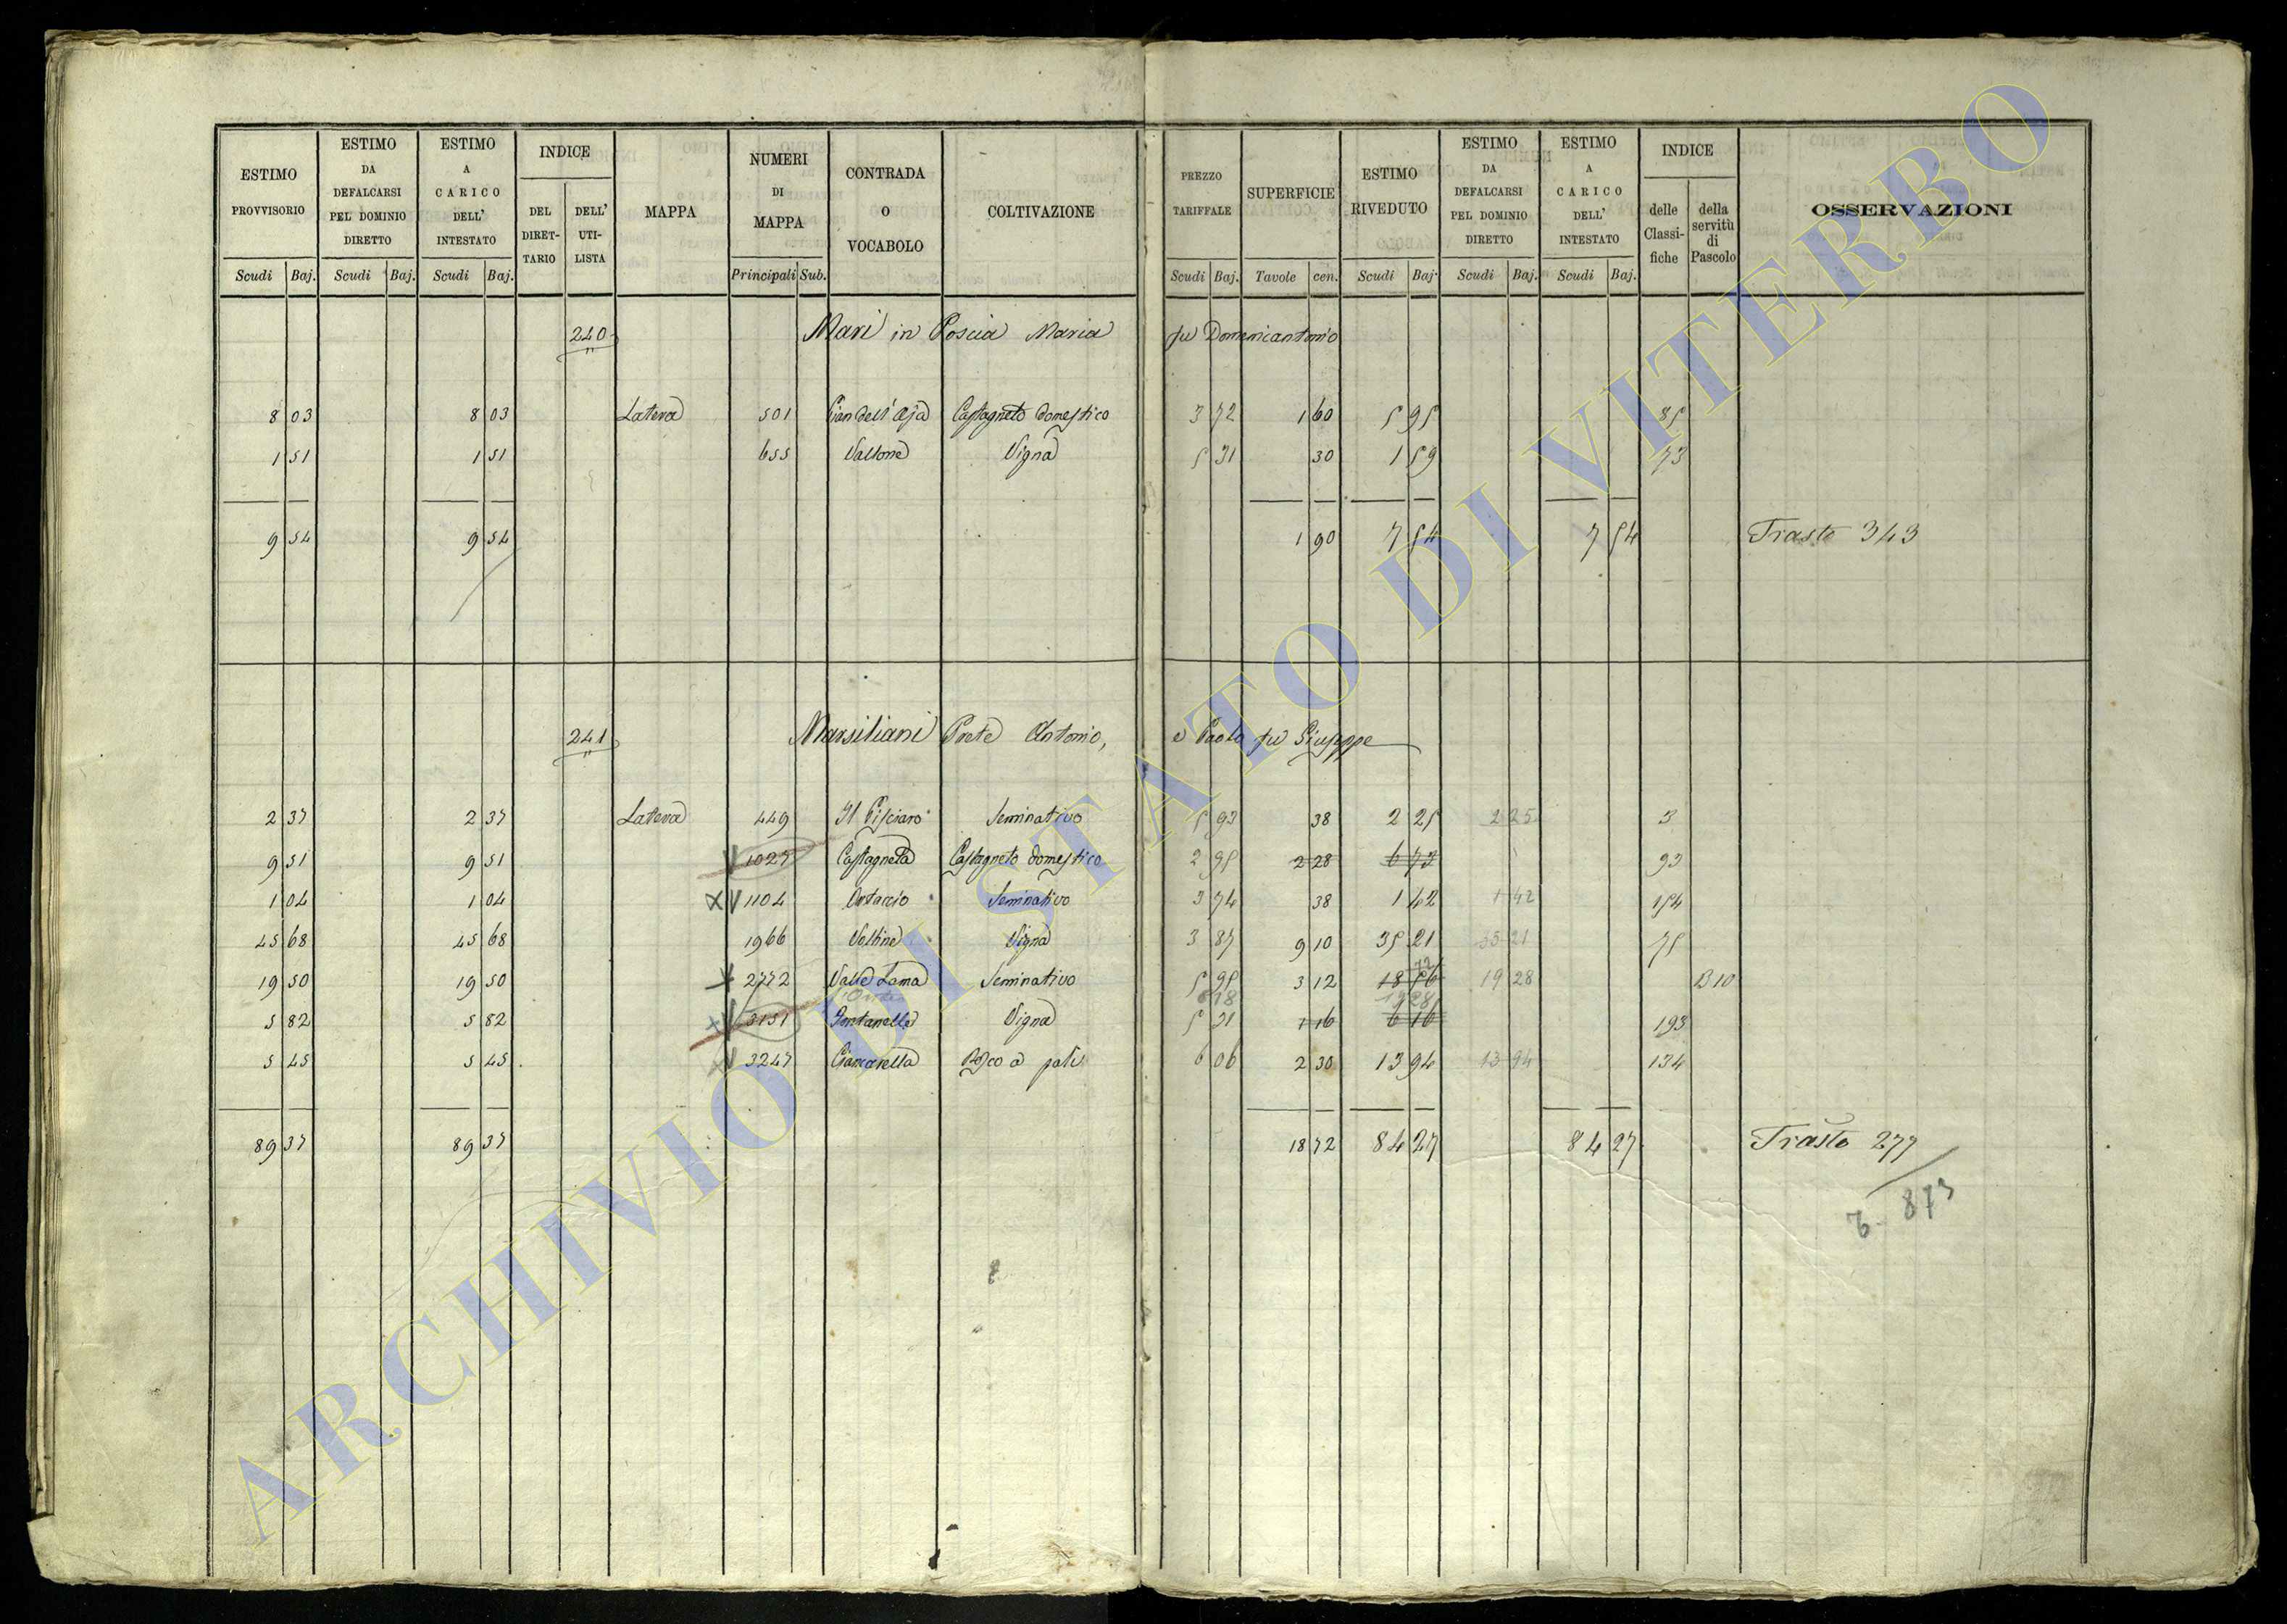 ESTIMO PROVVISORIO
ESTIMO DA DEFALCARSI PEL DOMINIO DIRETTO
ESTIMO A CARICO DELL' INTESTATO
INDICE
DEL DIRET- TARIO
DELL' UTI- LISTA
MAPPA
NUMERI DI MAPPA
CONTRADA O VOCABOLO
COLTIVAZIONE
PREZZO TARIFFALE
SUPERFICIE
ESTIMO RIVEDUTO
ESTIMO DA DEFALCARSI PEL DOMINIO DIRETTO
ESTIMO A CARICO DELL' INTESTATO
INDICE
delle Classi- fiche
della servitù di Pascolo
OSSERVAZIONI
Scudi Baj. Scudi Baj. Scudi Baj. Principali Sub. Scudi Baj. Tavole cen. Scudi Baj. Scudi Baj. Scudi Baj.
240 Mari in Poscia Maria fu Domenicantonio
8 03 8 03 Latera 501 Pian dell' Aja Castagneto domestico 3 72 1 60 5 95 85
1 51 1 51 655 Vallone Vigna 5 31 30 1 59 73
9 54 9 54 1 90 7 54 7 54 Trasto 343
241 Marsiliani Prete Antonio, e Paolo fu Giuseppe
2 37 2 37 Latera 449 Il Pisciaro Seminativo 5 93 38 2 25 2 25 3
9 51 9 51 1027 Castagneta Castagneto domestico 2 95 2 28 6 73 93
1 04 1 04 X V 1104 Ortaccio Seminativo 3 74 38 1 42 1 42 154
45 68 45 68 1966 Voltine Vigna 3 87 9 10 35 21 35 21 75
19 50 19 50 2772 Valle Lama Seminativo 5 95 3 12 18 56 19 28 B 10
6 18 19 28
5 82 5 82 3151 Fontanelle Vigna 5 31 1 16 6 16 193
5 45 5 45 3247 Ciancarella Bosco a pali 6 06 2 30 13 94 13 94 134
89 37 89 37 18 72 84 27 84 27 Trasto 277
873
ARCHIVIO DI STATO DI VITERBO